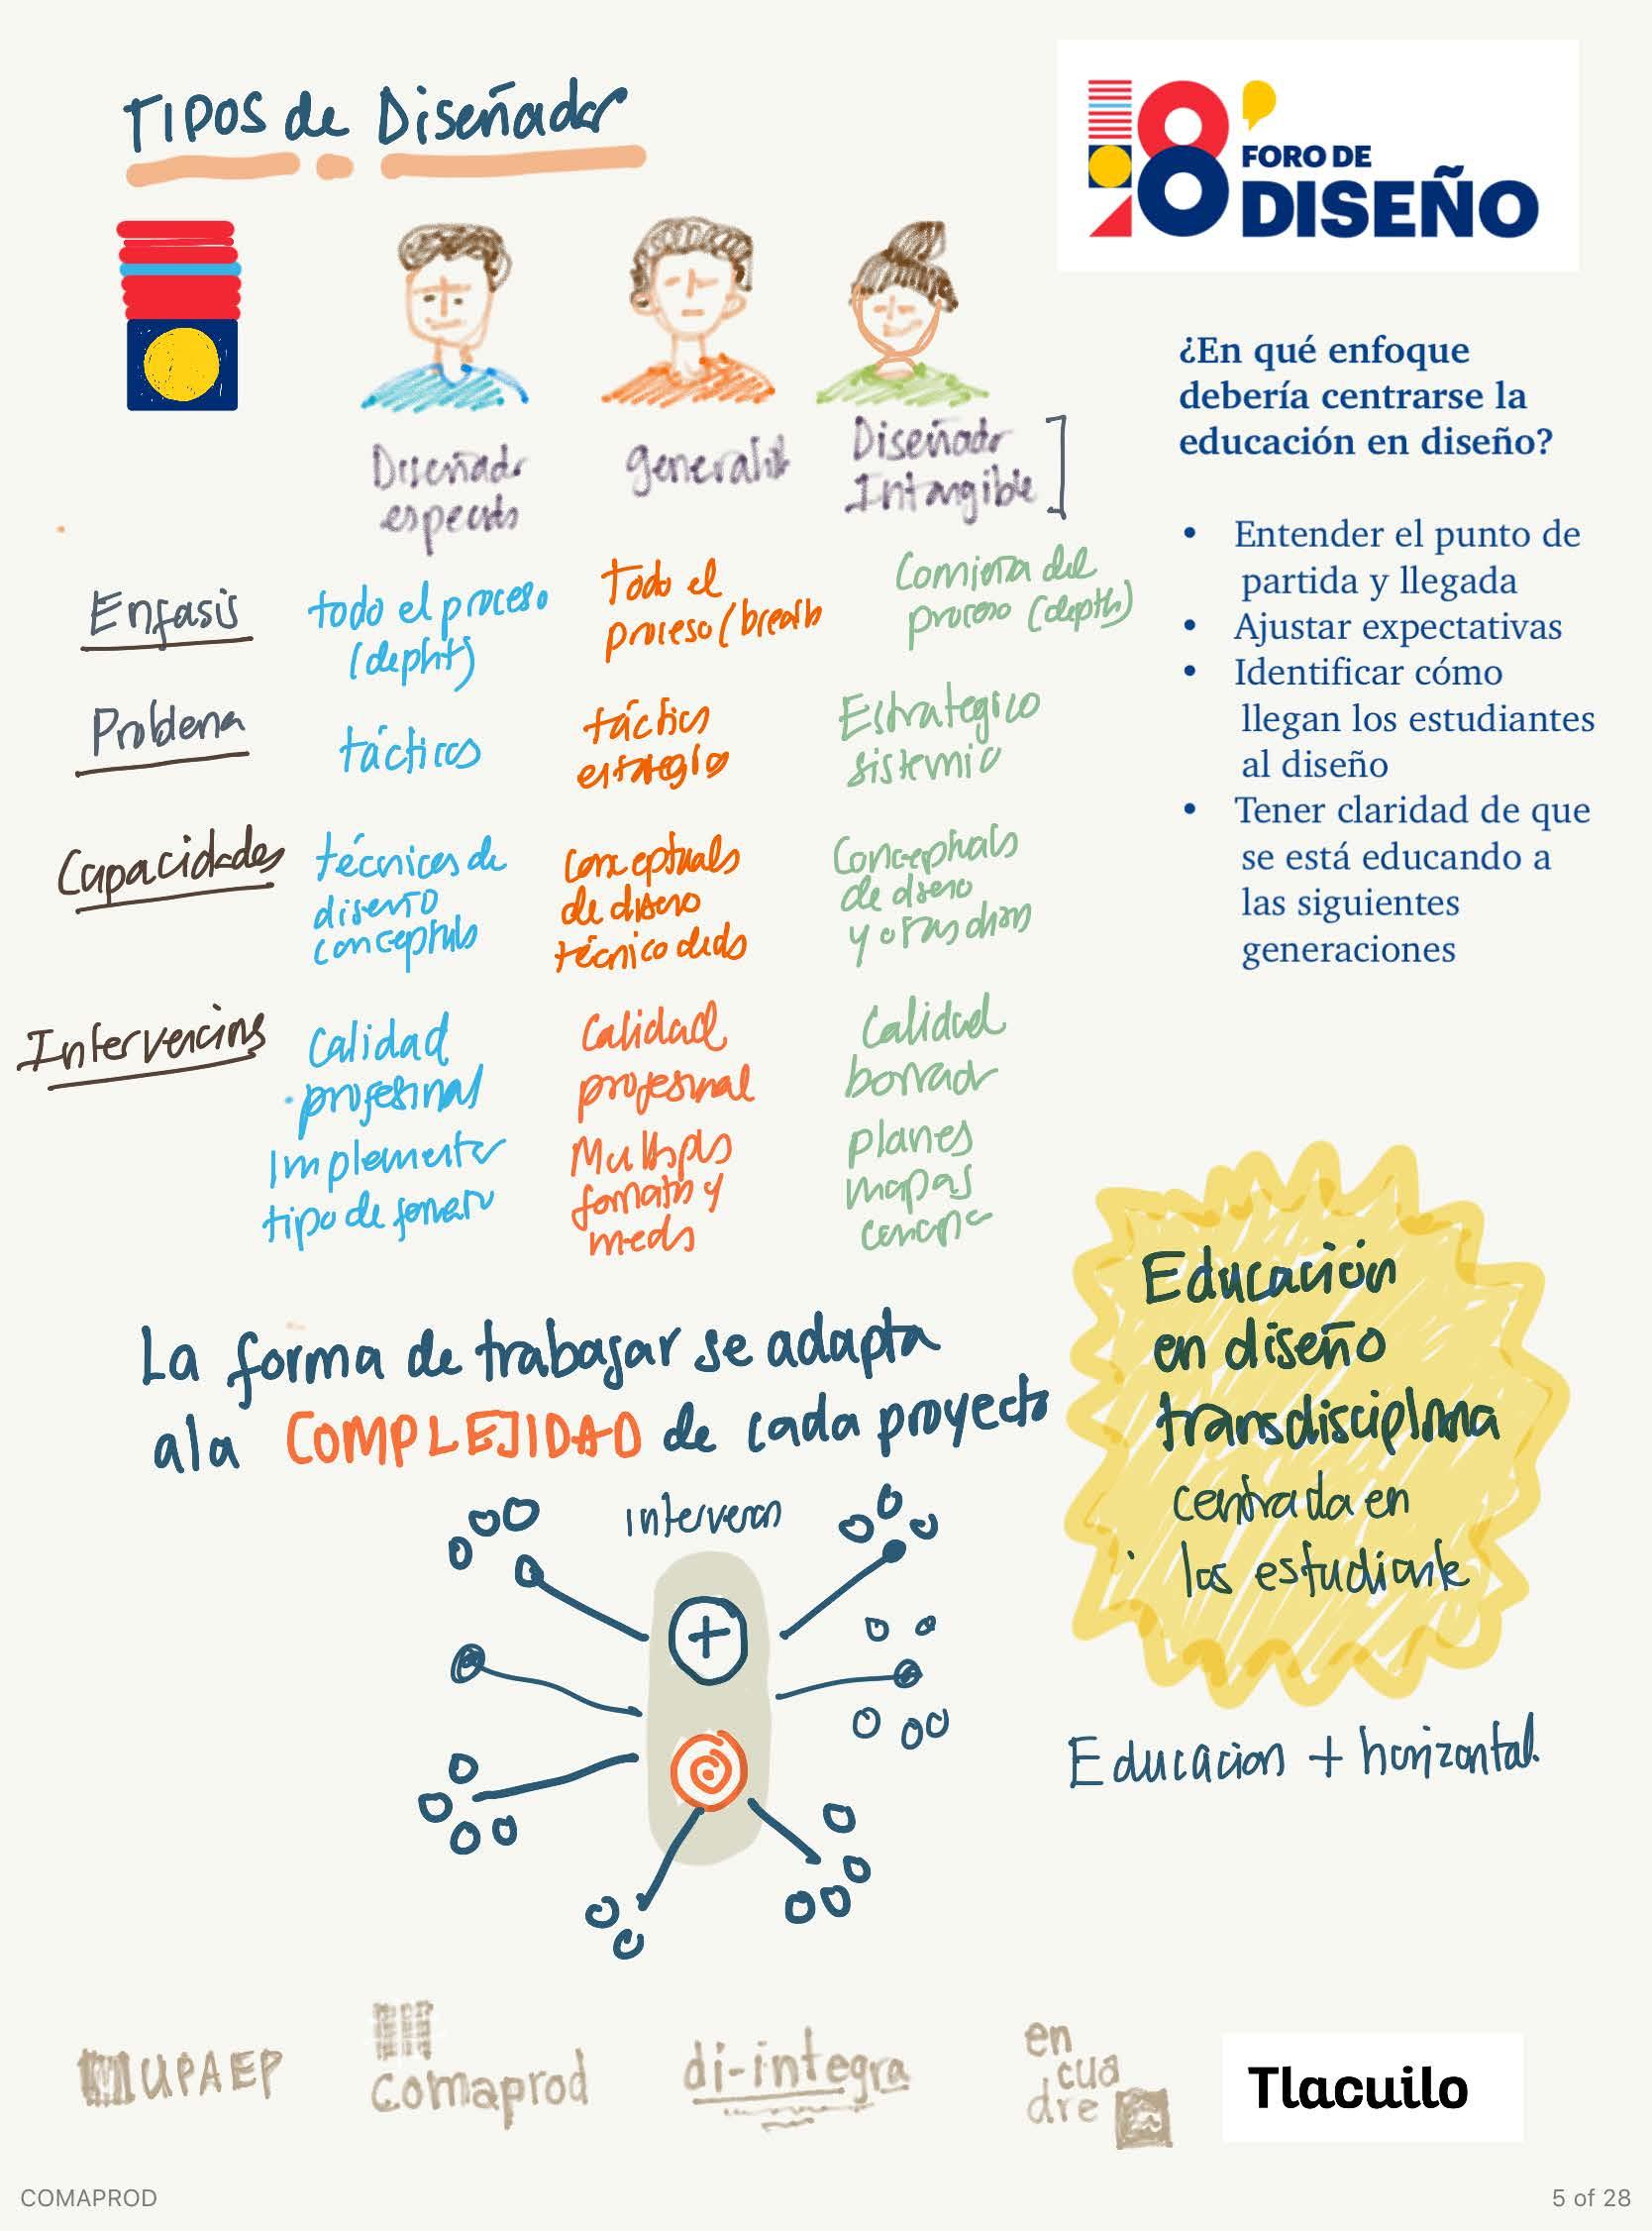 TIPOS de Diseñador
18'
FORO DE
DISEÑO
Diseñador
generalist
Diseñador
Intangible
Enfasis
todo el proceso
(depht)
Todo el
proceso (breath
Comienza del
proceso (depth)
Problema
tácticos
táctico
Estrategico
sistemic
Capacidades
técnicas de
diseño
conceptuales
de diseno
técnico
de diseno
Intervencions
Calidad
profesinal
Implementar
tipo de
Calidad
profesinal
formatos y
Calidad
borrador
planes
mapas
La forma de trabajar se adapta
a la COMPLEJIDAD de cada proyecto
¿En qué enfoque
debería centrarse la
educación en diseño?
• Entender el punto de
partida y llegada
• Ajustar expectativas
• Identificar cómo
llegan los estudiantes
al diseño
• Tener claridad de que
se está educando a
las siguientes
generaciones
Educación
en diseño
centrada en
los estudiante
Educacion + horizontal
+
UPAEP
Comaprod
di-integra
en
cua
dre
Tlacuilo
COMAPROD
5 of 28